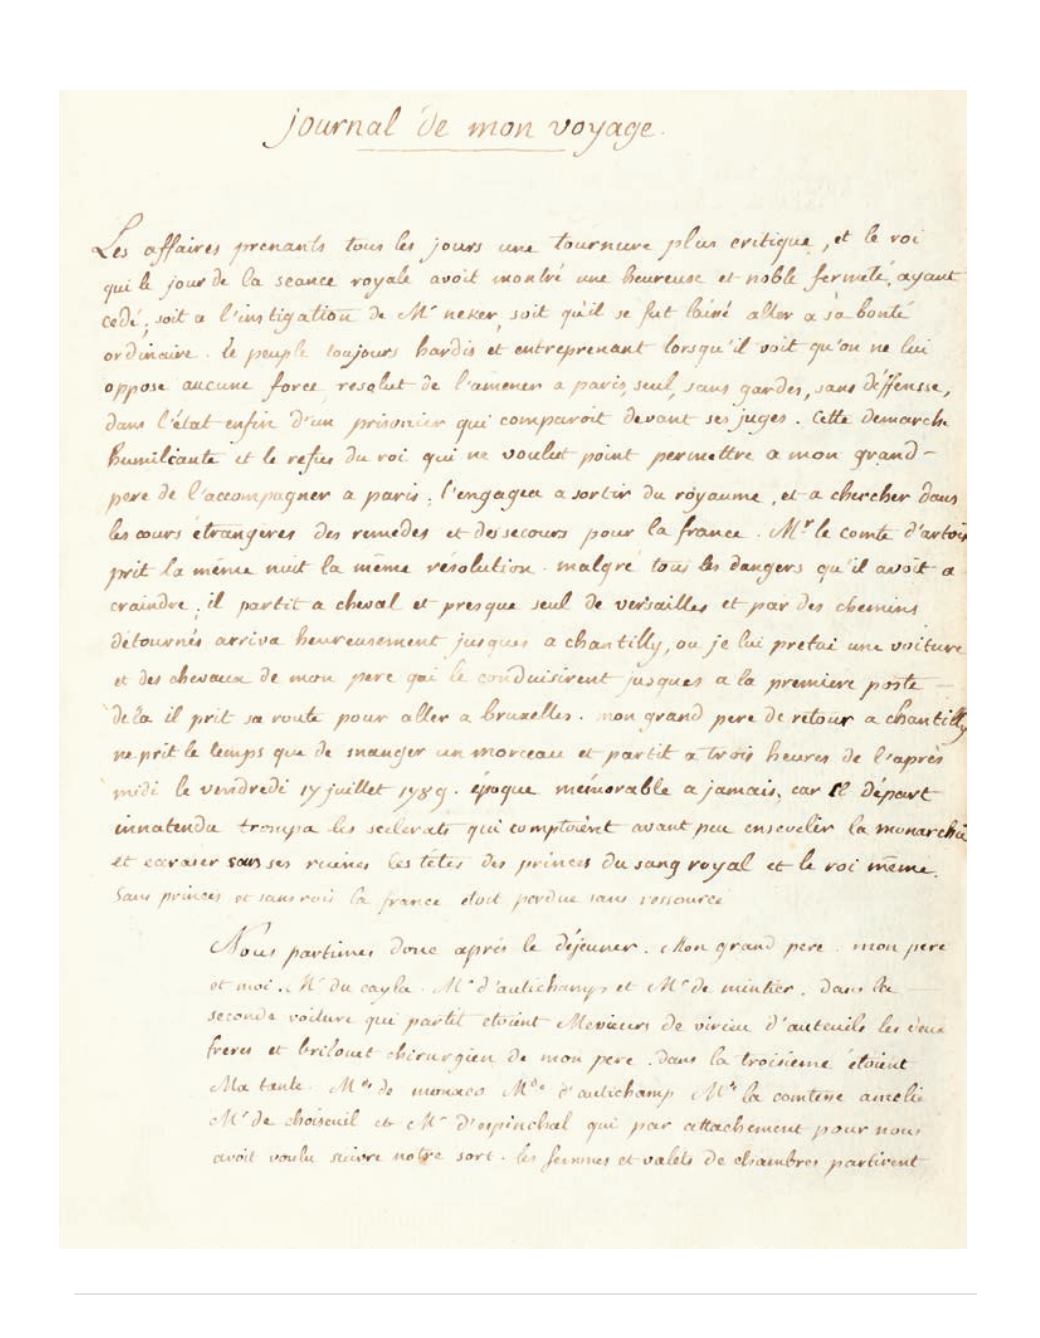 journal de mon voyage.
Les affaires prenants tous les jours une tournure plus critique, et le roi
qui le jour de la seance royale avoit montré une heureuse et noble fermeté, ayant
cedé; soit a l'instigation de Mr neker, soit qu'il se fut laissé aller a sa bonté
ordinaire. le peuple toujours hardis et entreprenant lorsqu'il voit qu'on ne lui
oppose aucune force, resolut de l'amener a paris, seul, sans gardes, sans déffensse,
dans l'état enfin d'un prisonier qui comparoit devant ses juges. Cette demarche
humiliante et le refus du roi qui ne voulut point permettre a mon grand-
pere de l'accompagner a paris; l'engagea a sortir du royaume, et a chercher dans
les cours étrangères des remedes et des secours pour la france. Mr le comte d'artois
prit la même nuit la même résolution. malgré tous les dangers qu'il avoit a
craindre; il partit a cheval et presque seul de versailles et par des chemins
détournés arriva heureusement jusques a chantilly, ou je lui pretai une voiture
et des chevaux de mon pere qui le conduisirent jusques a la premiere poste —
dela il prit sa route pour aller a bruxelles. mon grand pere de retour a chantilly
ne prit le temps que de manger un morceau et partit a trois heures de l'après
midi le vendredi 17 juillet 1789. époque mémorable a jamais, car ce départ
innatendu trompa les scelerats qui comptoient avant peu ensevelir la monarchie
et ecraser sous ses ruines les têtes des princes du sang royal et le roi même.
Sans princes et sans rois la france etoit perdue sans ressource
Nous partimes donc après le déjeuner. Mon grand pere. mon pere
et moi. Mr du cayla. Mr d'autichamps et Mr de mintier. dans la —
seconde voiture qui partit etoient Messieurs de virieu d'auteuils les deux
freres et brilouet chirurgien de mon pere. dans la troisieme étoient
Ma tante. Mde de monaco Mde d'autichamp Me la comtesse amelie
Mr de choiseuil et Mr d'espinchal qui par attachement pour nous
avoit voulu suivre notre sort. les femmes et valets de chambres partirent